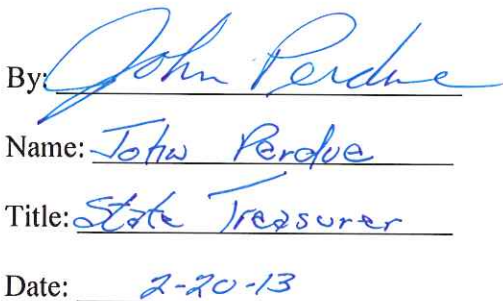 By: John Perdue
Name: John Perdue
Title: State Treasurer
Date: 2-20-13